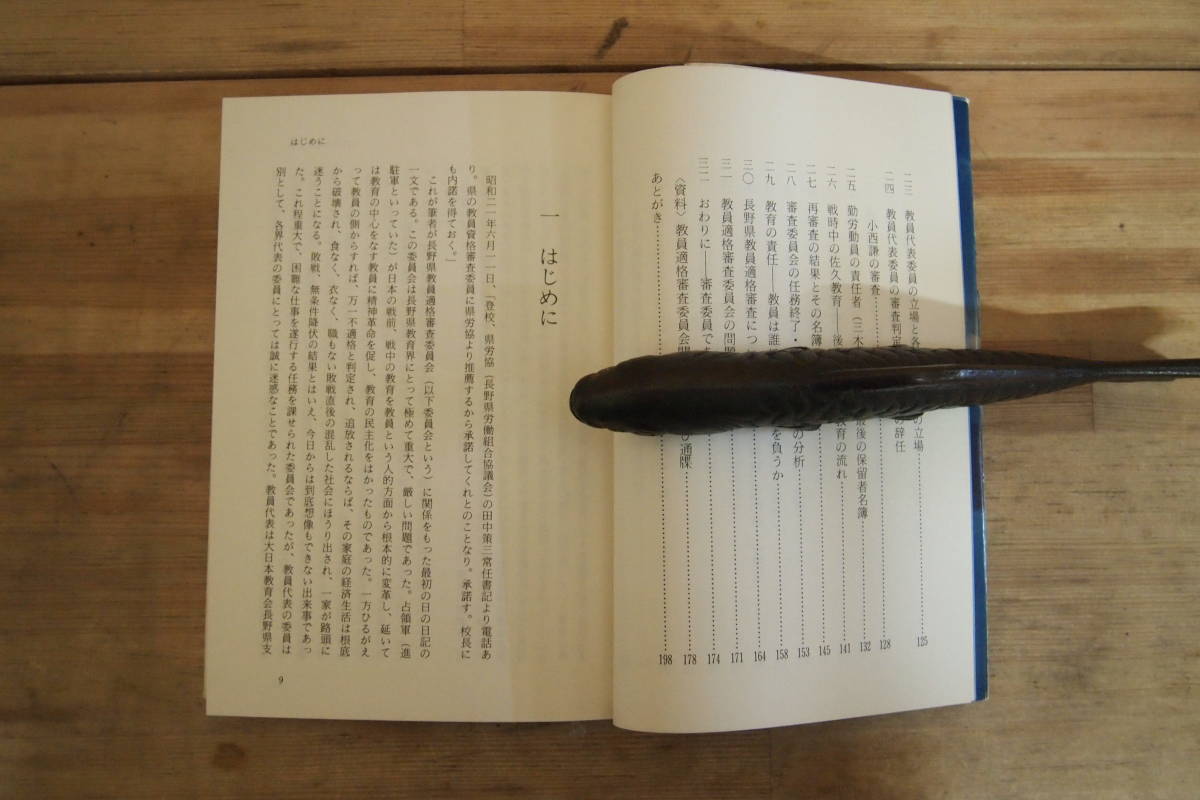 二三 教員代表委員の立場と各 の立場 125
二四 教員代表委員の審査判定 の辞任 128
小西謙の審査 132
二五 勤労動員の責任者(三木 最後の保留者名簿
二六 戦時中の佐久教育——後 教育の流れ 141
二七 再審査の結果とその名簿 145
二八 審査委員会の任務終了・ の分析 153
二九 教育の責任——教員は誰 を負うか 158
三〇 長野県教員適格審査につ 164
三一 教員適格審査委員会の問題 171
三二 おわりに——審査委員であ 174
〈資料〉教員適格審査委員会関 び通牒 178
あとがき 198
はじめに
一 はじめに
昭和二一年六月一一日、「登校、県労協(長野県労働組合協議会)の田中策三常任書記より電話あ
り。県の教員資格審査委員に県労協より推薦するから承諾してくれとのことなり。承諾す。校長に
も内諾を得ておく。」
これが筆者が長野県教員適格審査委員会(以下委員会という)に関係をもった最初の日の日記の
一文である。この委員会は長野県教育界にとって極めて重大で、厳しい問題であった。占領軍(進
駐軍といっていた)が日本の戦前、戦中の教育を教員という人的方面から根本的に変革し、延いて
は教育の中心をなす教員に精神革命を促し、教育の民主化をはかったものであった。一方ひるがえ
って教員の側からすれば、万一不適格と判定され、追放されるならば、その家庭の経済生活は根底
から破壊され、食なく、衣なく、職もない敗戦直後の混乱した社会にほうり出され、一家が路頭に
迷うことになる。敗戦、無条件降伏の結果とはいえ、今日からは到底想像もできない出来事であっ
た。これ程重大で、困難な仕事を遂行する任務を課せられた委員会であったが、教員代表の委員は
別として、各界代表の委員にとっては誠に迷惑なことであった。教員代表は大日本教育会長野県支
9